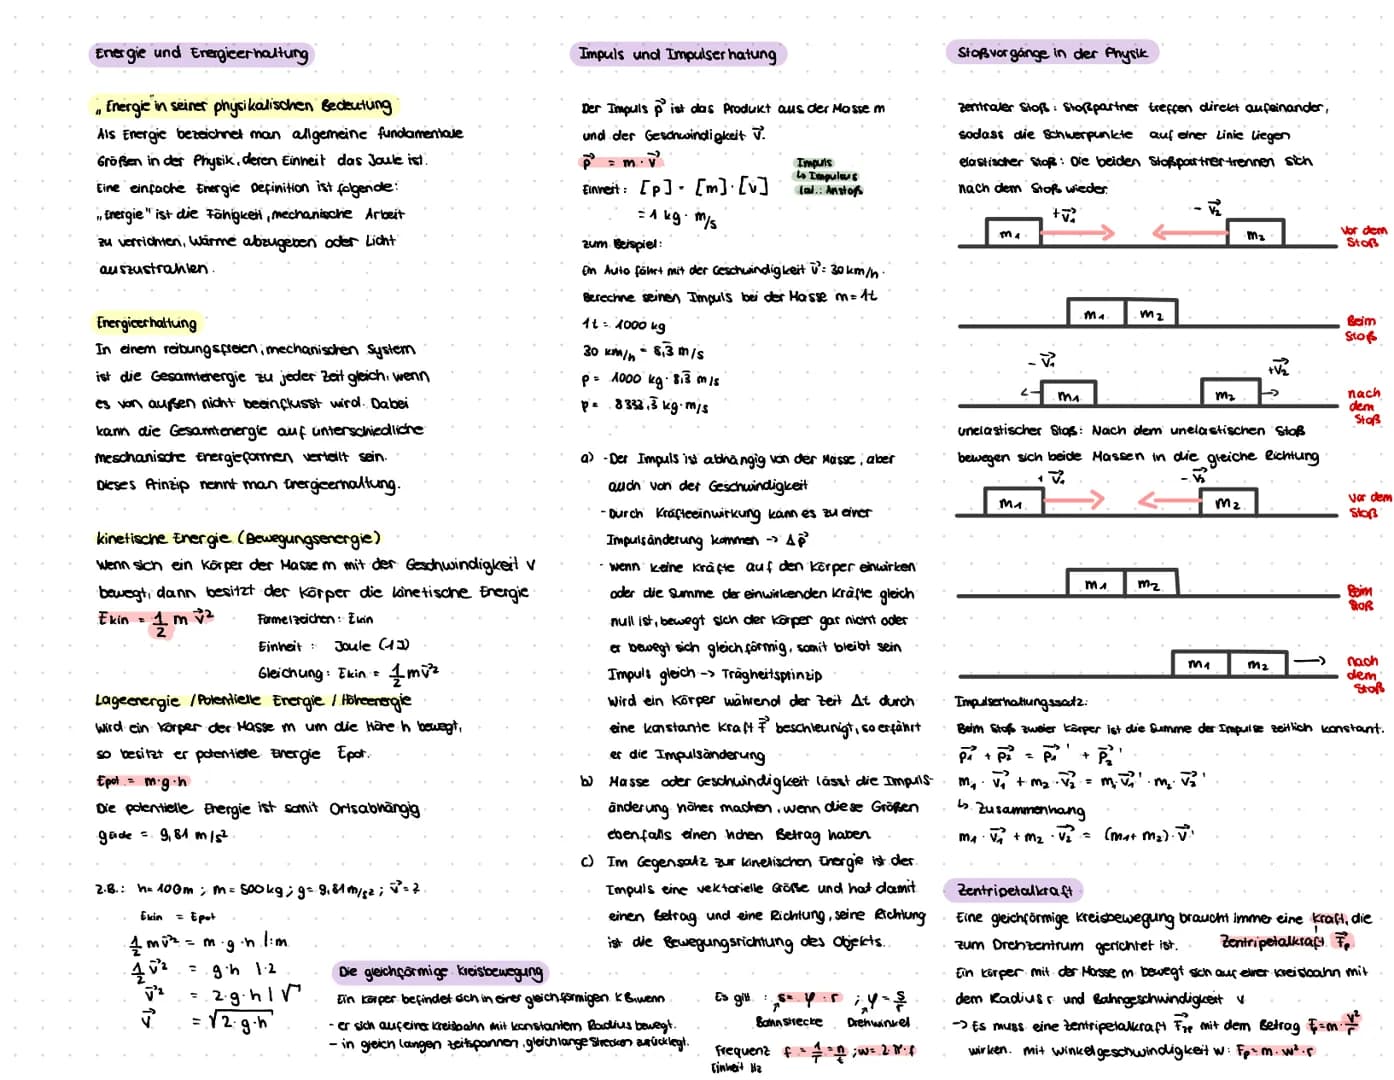 Energie und Energieerhaltung
„Energie" in seiner physikalischen Bedeutung
Als Energie bezeichnet man allgemeine fundamentale
Größen in der Physik, deren Einheit das Joule ist.
Eine einfache Energie Definition ist folgende:
„Energie" ist die Fähigkeit, mechanische Arbeit
zu verrichten, Wärme abzugeben oder Licht
auszustrahlen.
Energieerhaltung
In einem reibungsfreien, mechanischen System
ist die Gesamtenergie zu jeder Zeit gleich, wenn
es von außen nicht beeinflusst wird. Dabei
kann die Gesamtenergie auf unterschiedliche
meschanische Energieformen verteilt sein.
Dieses Prinzip nennt man Energieerhaltung.
kinetische Energie (Bewegungsenergie)
Wenn sich ein Körper der Masse m mit der Geschwindigkeit v
bewegt, dann besitzt der Körper die kinetische Energie
Ekin = 1/2 m v⃗²
Formelzeichen: Ekin
Einheit : Joule (1J)
Gleichung: Ekin = 1/2 m v⃗²
Lageenergie / Potentielle Energie / Höhenergie
Wird ein Körper der Masse m um die Höhe h bewegt,
so besitzt er potentielle Energie Epot.
Epot = m·g·h
Die potentielle Energie ist somit Ortsabhängig
gerde = 9,81 m/s²
z.B.: h= 100m ; m= 500kg ; g= 9,81m/s2 ; v⃗= ?
Ekin = Epot
1/2 m v⃗² = m · g · h |:m
1/2 v⃗² = g·h |·2
v⃗² = 2·g·h | √
v⃗ = √2·g·h
Impuls und Impulserhatung
Der Impuls p⃗ ist das Produkt aus der Masse m
und der Geschwindigkeit v⃗.
p⃗ = m · v⃗
Impuls
↳ Impulsus
lat.: Anstoß
Einheit : [p] = [m] · [v]
= 1 kg · m/s
zum Beispiel:
Ein Auto fährt mit der Geschwindigkeit v⃗= 30km/h.
Berechne seinen Impuls bei der Masse m= 1t
1t = 1000 kg
30 km/h = 8,3̅ m/s
p = 1000 kg · 8,3̅ m/s
p = 8333,3̅ kg·m/s
a) - Der Impuls ist abhängig von der Masse, aber
auch von der Geschwindigkeit
- Durch Kräfteeinwirkung kann es zu einer
Impulsänderung kommen -> Δp⃗
- wenn keine Kräfte auf den Körper einwirken
oder die Summe der einwirkenden Kräfte gleich
null ist, bewegt sich der Körper gar nicht oder
er bewegt sich gleichförmig, somit bleibt sein
Impuls gleich -> Trägheitsprinzip
Wird ein Körper während der Zeit Δt durch
eine konstante Kraft F⃗ beschleunigt, so erfährt
er die Impulsänderung
b) Masse oder Geschwindigkeit lässt die Impuls-
änderung höher machen, wenn diese Größen
ebenfalls einen hohen Betrag haben
c) Im Gegensatz zur kinetischen Energie ist der
Impuls eine vektorielle Größe und hat damit
einen Betrag und eine Richtung, seine Richtung
ist die Bewegungsrichtung des Objekts.
Die gleichförmige Kreisbewegung
Ein Körper befindet sich in einer gleichförmigen KB wenn
- er sich auf einer Kreisbahn mit konstantem Radius bewegt.
- in gleich langen Zeitspannen, gleich lange Strecken zurücklegt.
Es gilt : s= φ · r ; φ = s/r
Bahnstrecke Drehwinkel
Frequenz f = 1/T = n/t ; w= 2·π·f
Einheit Hz
Stoßvorgänge in der Physik
zentraler Stoß : Stoßpartner treffen direkt aufeinander,
sodass die Schwerpunkte auf einer Linie liegen
elastischer Stoß : Die beiden Stoßpartner trennen sich
nach dem Stoß wieder
m1 +v⃗1 - v⃗2 m2
Vor dem Stoß
m1 m2
Beim Stoß
- v⃗1 m1 m2 +v⃗2
nach dem Stoß
unelastischer Stoß : Nach dem unelastischen Stoß
bewegen sich beide Massen in die gleiche Richtung
m1 + v⃗1 - v⃗2 m2
vor dem Stoß
m1 m2
Beim Stoß
m1 m2
nach dem Stoß
Impulserhaltungssatz:
Beim Stoß zweier Körper ist die Summe der Impulse zeitlich konstant.
p⃗1 + p⃗2 = p⃗1' + p⃗2'
m1 · v⃗1 + m2 · v⃗2 = m1 v⃗1' · m2 · v⃗2'
↳ Zusammenhang
m1 · v⃗1 + m2 · v⃗2 = (m1+ m2) · v⃗'
Zentripetalkraft
Eine gleichförmige Kreisbewegung braucht immer eine Kraft, die
zum Drehzentrum gerichtet ist. Zentripetalkraft F⃗p
Ein Körper mit der Masse m bewegt sich auf einer Kreisbahn mit
dem Radius r und Bahngeschwindigkeit v
-> Es muss eine Zentripetalkraft F⃗zp mit dem Betrag Fp=m·v²/r
wirken. mit Winkelgeschwindigkeit w: Fp=m·w²·r